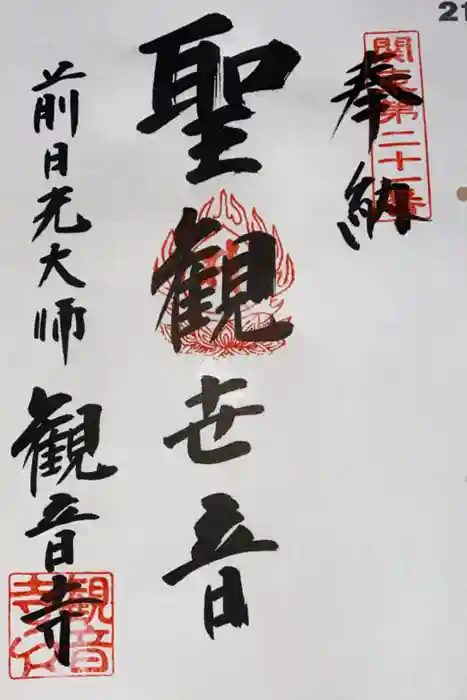 21
奉納
関東第二十一番
聖観世音
前日光大师 観音寺
観音
寺印